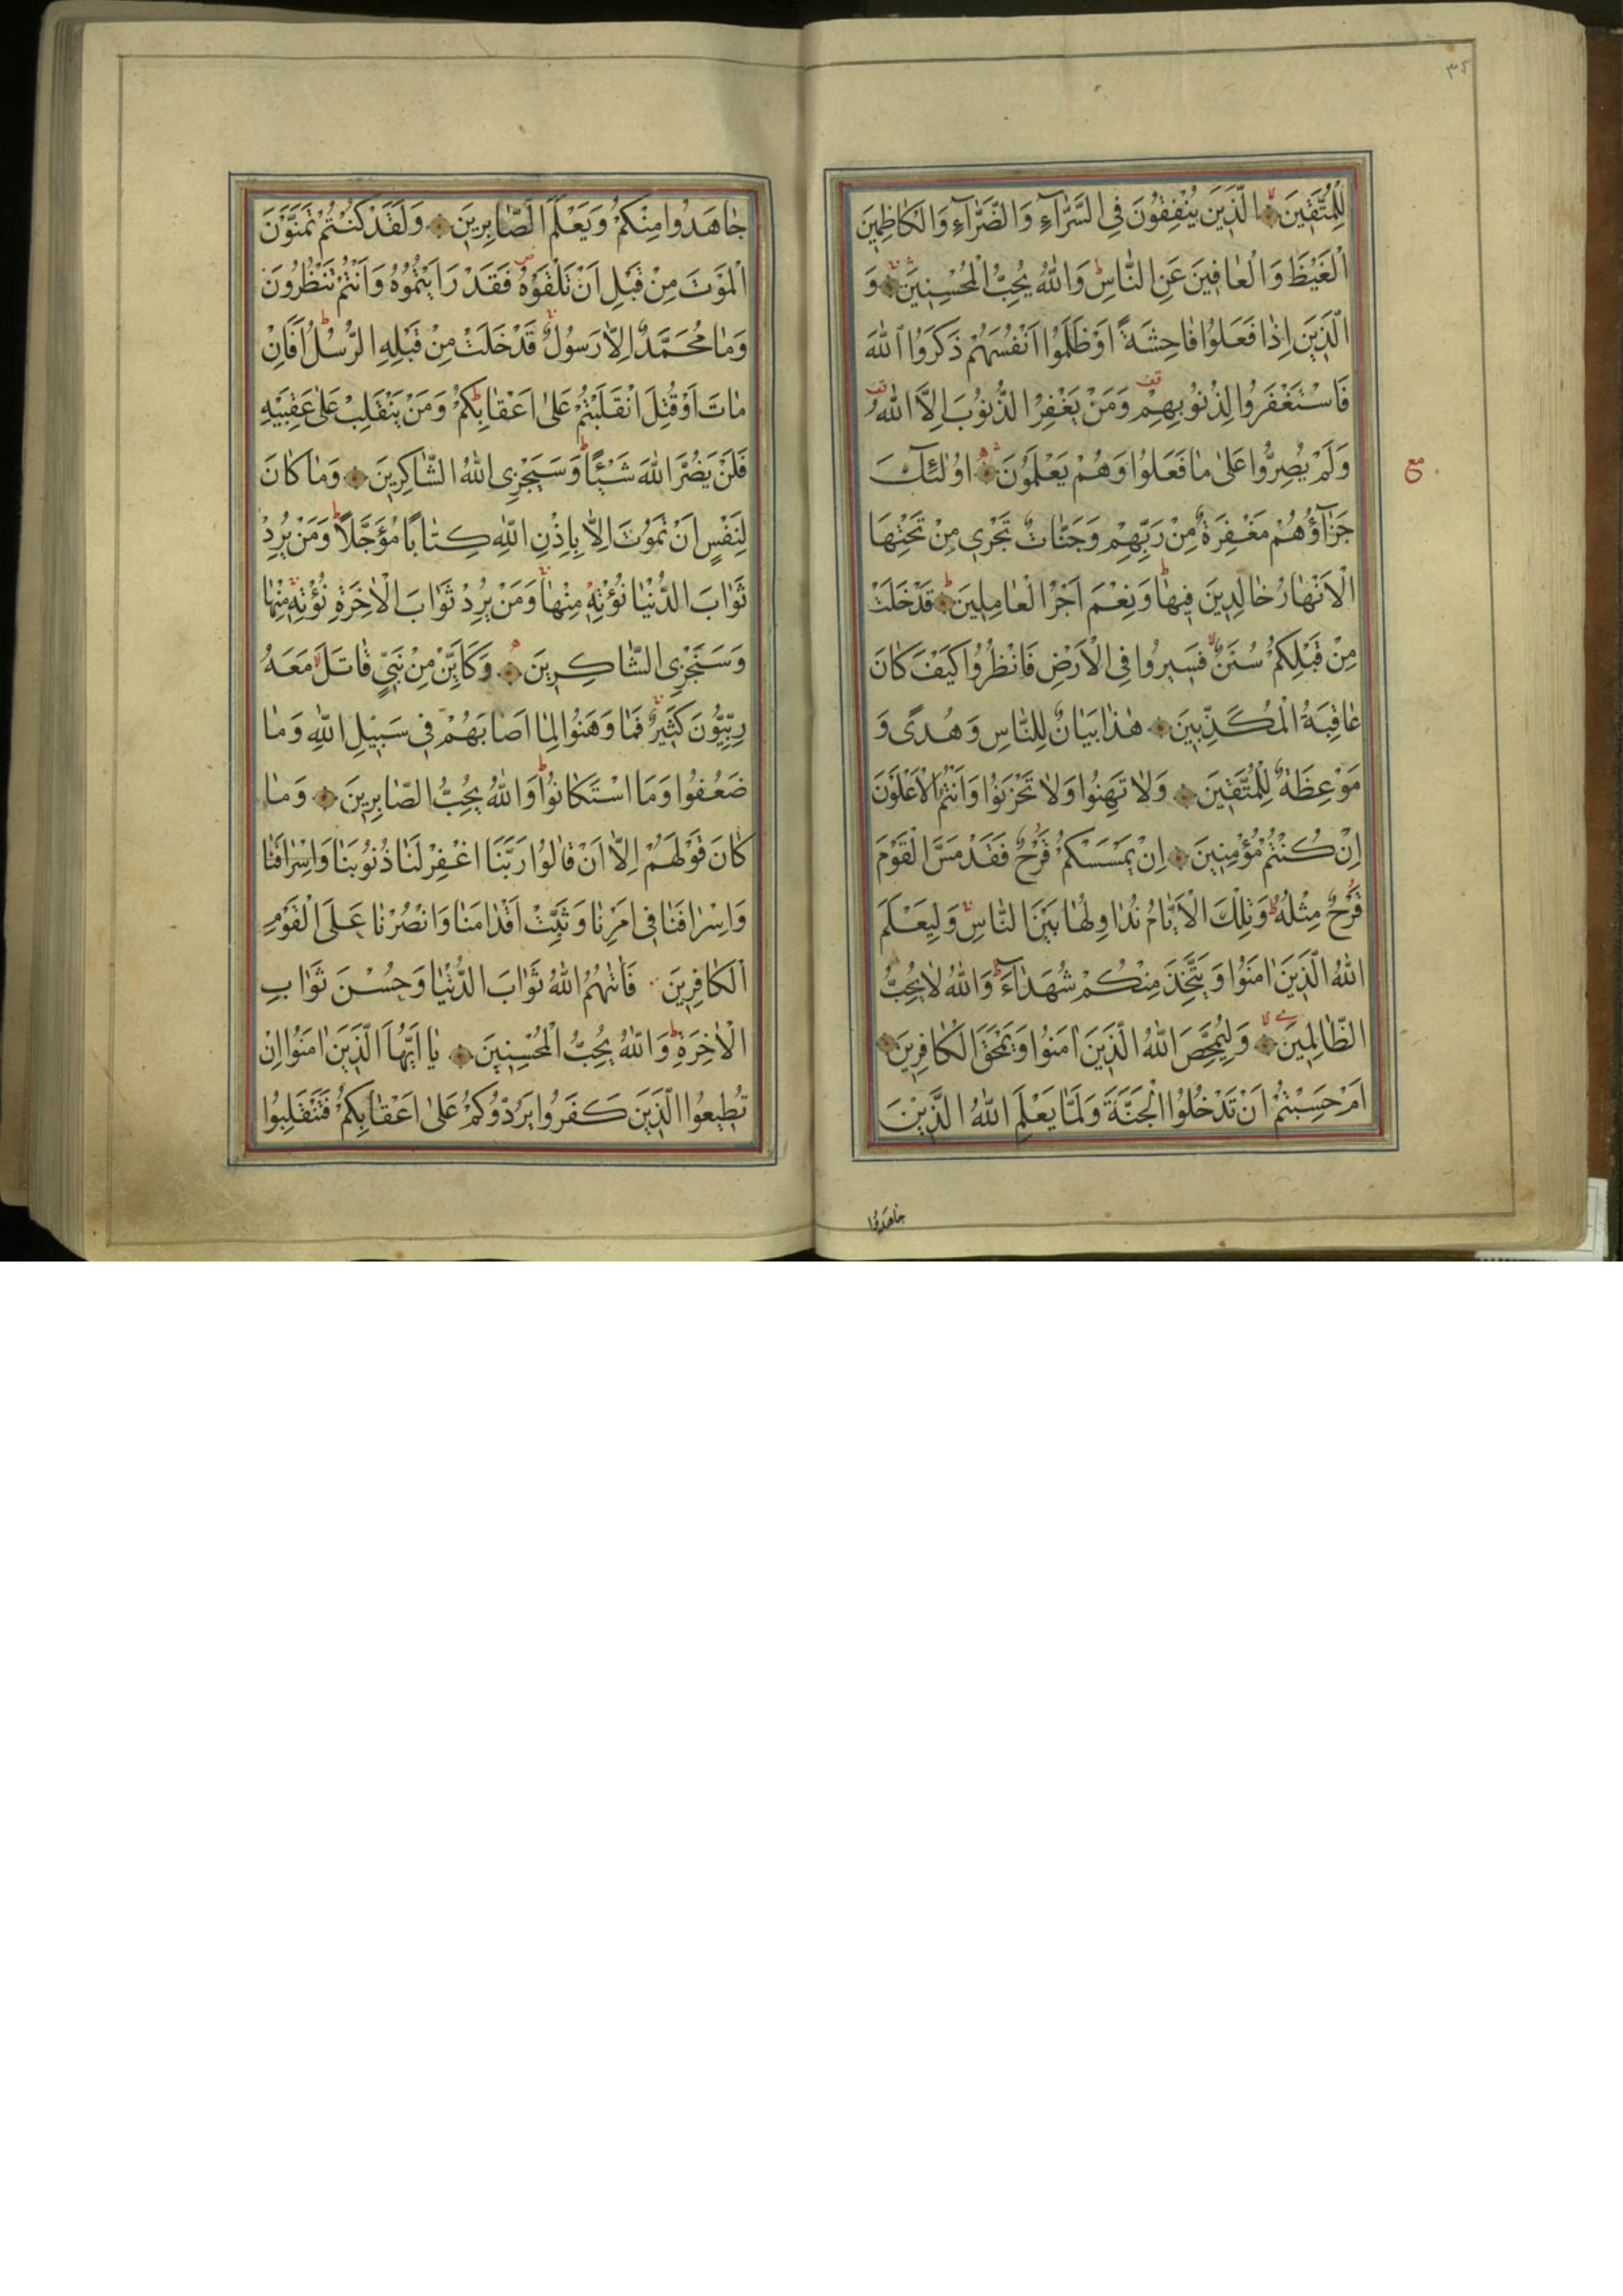 ٣٥
لِلْمُتَّقِينَ الَّذِينَ يُنْفِقُونَ فِي السَّرَّاءِ وَالضَّرَّاءِ وَالْكَاظِمِينَ
الْغَيْظَ وَالْعَافِينَ عَنِ النَّاسِ ط وَاللّٰهُ يُحِبُّ الْمُحْسِنِينَ وَ
الَّذِينَ اِذَا فَعَلُوا فَاحِشَةً اَوْ ظَلَمُوا اَنْفُسَهُمْ ذَكَرُوا اللّٰهَ
فَاسْتَغْفَرُوا لِذُنُوبِهِمْ قف وَمَنْ يَغْفِرُ الذُّنُوبَ اِلَّا اللّٰهُ قف
وَلَمْ يُصِرُّوا عَلٰى مَا فَعَلُوا وَهُمْ يَعْلَمُونَ اُولٰئِكَ
مع
جَزَاؤُهُمْ مَغْفِرَةٌ مِنْ رَبِّهِمْ وَجَنَّاتٌ تَجْرِي مِنْ تَحْتِهَا
الْاَنْهَارُ خَالِدِينَ فِيهَا ط وَنِعْمَ اَجْرُ الْعَامِلِينَ ط قَدْ خَلَتْ
مِنْ قَبْلِكُمْ سُنَنٌ لا فَسِيرُوا فِي الْاَرْضِ فَانْظُرُوا كَيْفَ كَانَ
عَاقِبَةُ الْمُكَذِّبِينَ هٰذَا بَيَانٌ لِلنَّاسِ وَهُدًى وَ
مَوْعِظَةٌ لِلْمُتَّقِينَ وَلَا تَهِنُوا وَلَا تَحْزَنُوا وَاَنْتُمُ الْاَعْلَوْنَ
اِنْ كُنْتُمْ مُؤْمِنِينَ اِنْ يَمْسَسْكُمْ قَرْحٌ فَقَدْ مَسَّ الْقَوْمَ
قَرْحٌ مِثْلُهُ ط وَتِلْكَ الْاَيَّامُ نُدَاوِلُهَا بَيْنَ النَّاسِ وَلِيَعْلَمَ
اللّٰهُ الَّذِينَ اٰمَنُوا وَيَتَّخِذَ مِنْكُمْ شُهَدَاءَ ط وَاللّٰهُ لَا يُحِبُّ
الظَّالِمِينَ لا وَلِيُمَحِّصَ اللّٰهُ الَّذِينَ اٰمَنُوا وَيَمْحَقَ الْكَافِرِينَ
اَمْ حَسِبْتُمْ اَنْ تَدْخُلُوا الْجَنَّةَ وَلَمَّا يَعْلَمِ اللّٰهُ الَّذِينَ
جَاهَدُوا
جَاهَدُوا مِنْكُمْ وَيَعْلَمَ الصَّابِرِينَ وَلَقَدْ كُنْتُمْ تَمَنَّوْنَ
الْمَوْتَ مِنْ قَبْلِ اَنْ تَلْقَوْهُ ص فَقَدْ رَاَيْتُمُوهُ وَاَنْتُمْ تَنْظُرُونَ
وَمَا مُحَمَّدٌ اِلَّا رَسُولٌ قَدْ خَلَتْ مِنْ قَبْلِهِ الرُّسُلُ ط اَفَاِنْ
مَاتَ اَوْ قُتِلَ انْقَلَبْتُمْ عَلٰى اَعْقَابِكُمْ ط وَمَنْ يَنْقَلِبْ عَلٰى عَقِبَيْهِ
فَلَنْ يَضُرَّ اللّٰهَ شَيْئًا ط وَسَيَجْزِي اللّٰهُ الشَّاكِرِينَ وَمَا كَانَ
لِنَفْسٍ اَنْ تَمُوتَ اِلَّا بِاِذْنِ اللّٰهِ كِتَابًا مُؤَجَّلًا ط وَمَنْ يُرِدْ
ثَوَابَ الدُّنْيَا نُؤْتِهِ مِنْهَا وَمَنْ يُرِدْ ثَوَابَ الْاٰخِرَةِ نُؤْتِهِ مِنْهَا
وَسَنَجْزِي الشَّاكِرِينَ وَكَاَيِّنْ مِنْ نَبِيٍّ قَاتَلَ لا مَعَهُ
رِبِّيُّونَ كَثِيرٌ فَمَا وَهَنُوا لِمَا اَصَابَهُمْ فِي سَبِيلِ اللّٰهِ وَمَا
ضَعُفُوا وَمَا اسْتَكَانُوا ط وَاللّٰهُ يُحِبُّ الصَّابِرِينَ وَمَا
كَانَ قَوْلَهُمْ اِلَّا اَنْ قَالُوا رَبَّنَا اغْفِرْ لَنَا ذُنُوبَنَا وَاِسْرَافَنَا
وَاِسْرَافَنَا فِي اَمْرِنَا وَثَبِّتْ اَقْدَامَنَا وَانْصُرْنَا عَلَى الْقَوْمِ
الْكَافِرِينَ فَاٰتٰيهُمُ اللّٰهُ ثَوَابَ الدُّنْيَا وَحُسْنَ ثَوَابِ
الْاٰخِرَةِ ط وَاللّٰهُ يُحِبُّ الْمُحْسِنِينَ يَا اَيُّهَا الَّذِينَ اٰمَنُوا اِنْ
تُطِيعُوا الَّذِينَ كَفَرُوا يَرُدُّوكُمْ عَلٰى اَعْقَابِكُمْ فَتَنْقَلِبُوا